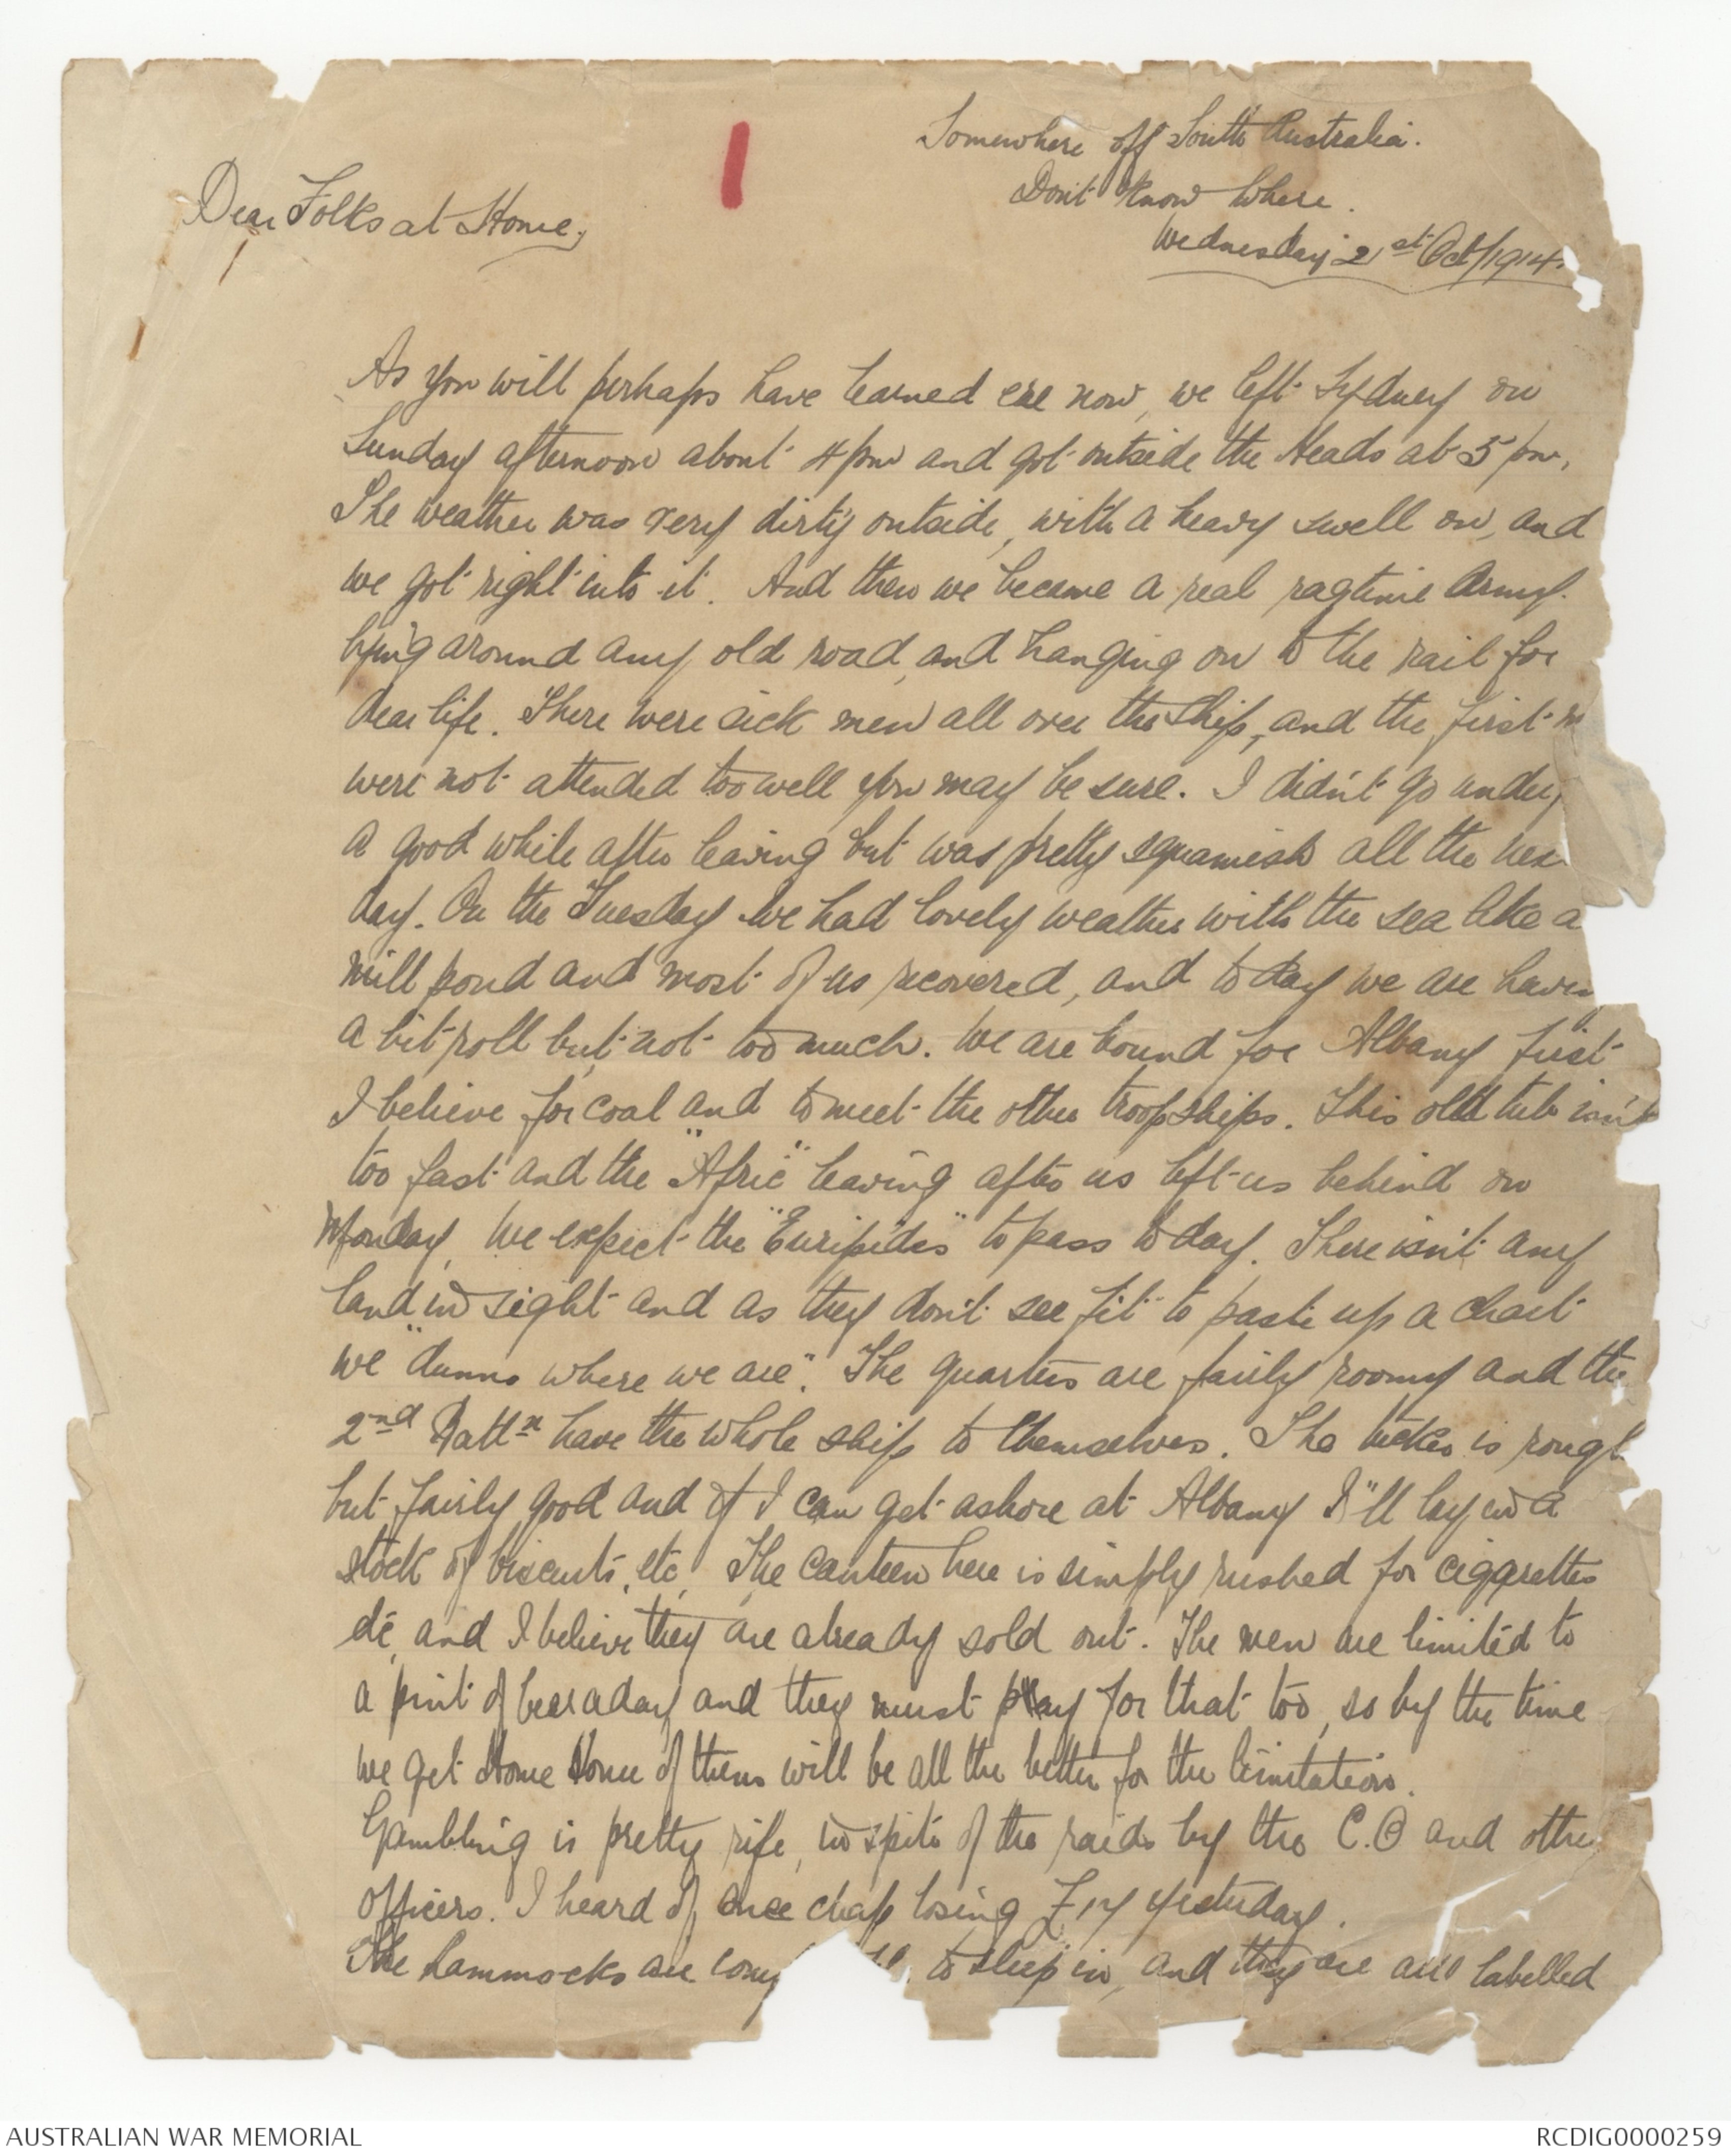 1
Somewhere off South Australia.
Don't Know Where.
Dear Folks at Home,
Wednesday 21st Oct/1914.
As you will perhaps have learned ere now, we left Sydney on
Sunday afternoon about 4 pm and got outside the Heads at 5 pm.
The weather was very dirty outside, with a heavy swell on, and
we got right into it. And then we became a real ragtime Army.
lying around any old road, and hanging on to the rail for
dear life. There were sick men all over the ship, and the first
were not attended too well you may be sure. I didn't go under
a good while after leaving but was pretty squamish all the
day. On the Tuesday we had lovely weather with the sea like a
mill pond and most of us recovered, and to day we are havin
a bit roll but not too much. We are bound for Albany first
I believe for coal and to meet the other troopships. This old tub isn't
too fast and the "Afric" leaving after us left us behind on
Monday, we expect the "Euripides" to pass to day. There isn't any
land in sight and as they don't see fit to paste up a chart
we "dunno where we are". The quarters are fairly roomy and the
2nd Battn have the whole ship to themselves. The tucker is rough
but fairly good and if I can get ashore at Albany I'll lay in a
stock of biscuits, etc. The canteen here is simply rushed for ciggarettes
etc, and I believe they are already sold out. The men are limited to
a pint of beer a day and they must pay for that too, so by the time
we get Home some of them will be all the better for the limitation.
Gambling is pretty rife, in spite of the raids by the C.O and other
Officers. I heard of one chap losing £14 yesterday.
The hammocks are to sleep in, and they are all labelled
AUSTRALIAN WAR MEMORIAL
RCDIG0000259